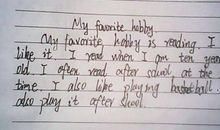 My favorite hobby
My favorite hobby is reading. I
like it. I read when I am ten year
old. I often read after school at the
time. I also like playing basketball.
also play it after school.